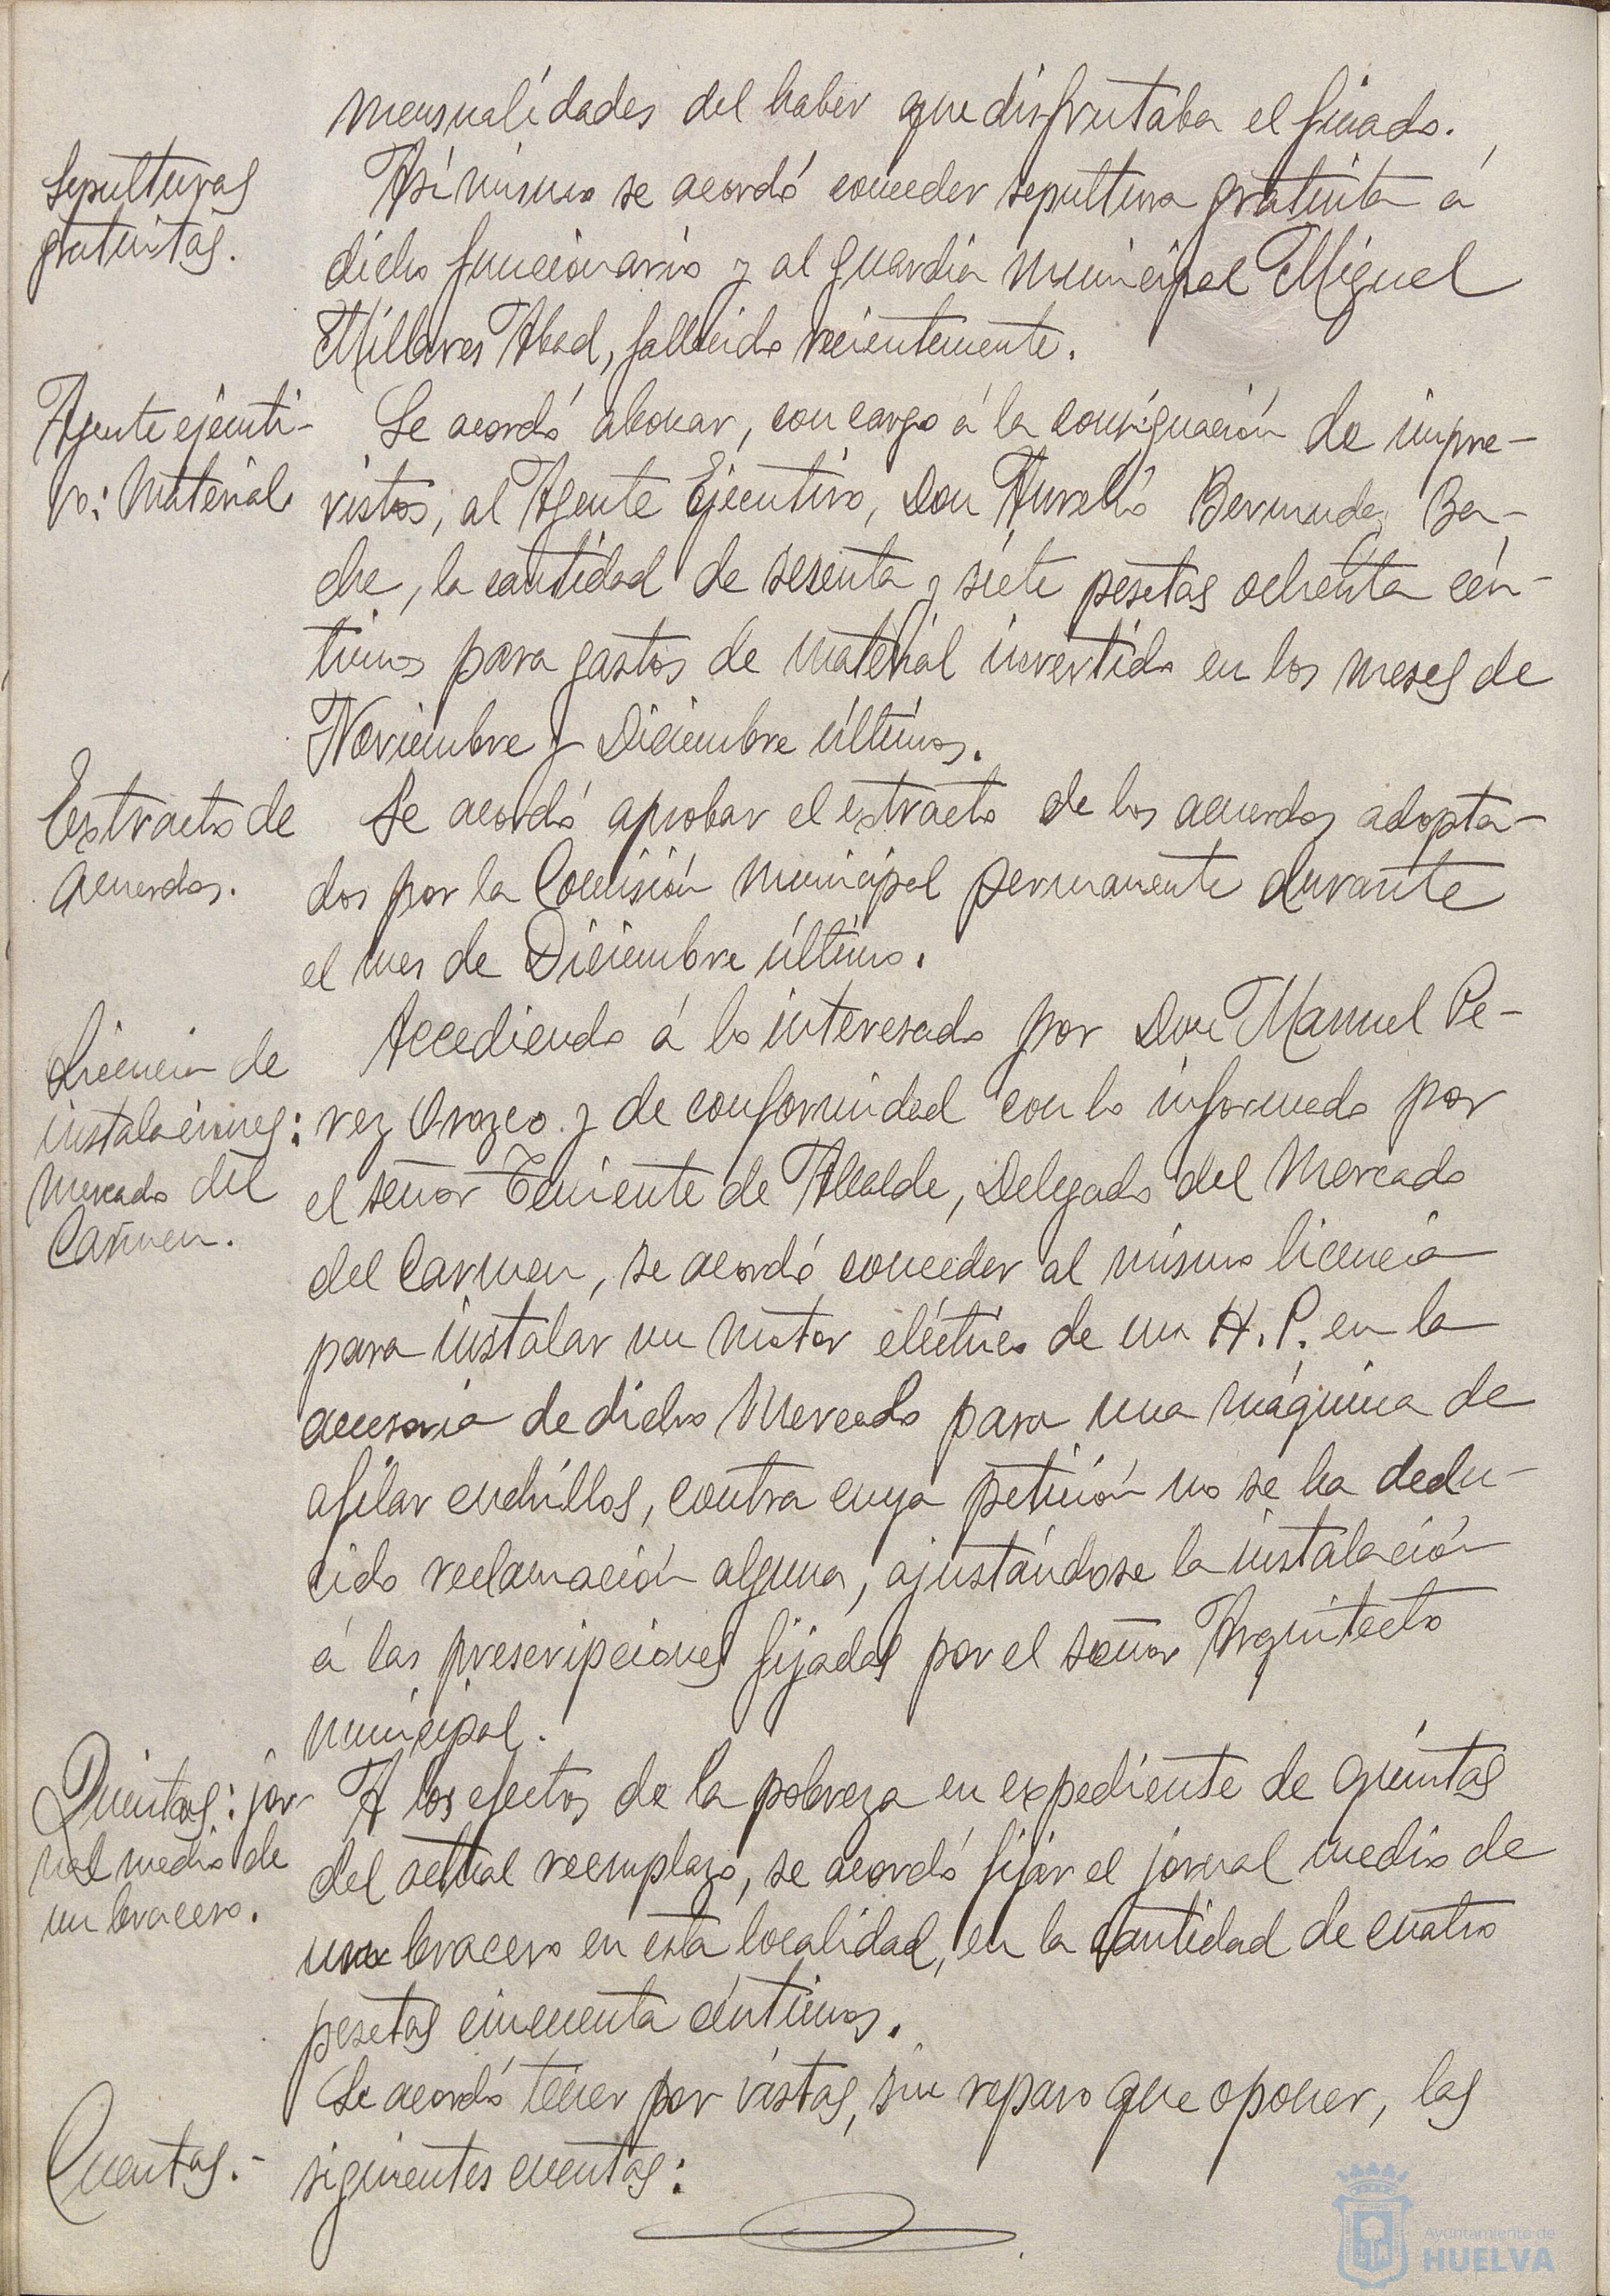 mensualidades del haber que disfrutaba el finado.
Sepulturas
gratuitas.
Así mismo se acordó conceder sepultura gratuita á
dicho funcionario y al guardia municipal Miguel
Millares Abad, fallecido recientemente.
Agente ejecuti-
vo: Material
Se acordó abonar, con cargo á la consignación de impre-
vistos, al Agente Ejecutivo, Don Aurelio Bermudez Ba-
che, la cantidad de sesenta y siete pesetas ochenta cén-
timos para gastos de material invertido en los meses de
Noviembre y Diciembre últimos.
Extracto de
acuerdos.
Se acordó aprobar el extracto de los acuerdos adopta-
dos por la Comisión municipal permanente durante
el mes de Diciembre último.
Licencia de
instalaciones:
Mercado del
Carmen.
Accediendo á lo interesado por Don Manuel Pe-
rez Orozco y de conformidad con lo informado por
el señor Teniente de Alcalde, Delegado del Mercado
del Carmen, se acordó conceder al mismo licencia
para instalar un motor eléctrico de un H.P. en la
accesoria de dicho Mercado para una máquina de
afilar cuchillos, contra cuya petición no se ha dedu-
cido reclamación alguna, ajustándose la instalación
á las prescripciones fijadas por el señor Arquitecto
municipal.
Quintas: jor-
nal medio de
un bracero.
A los efectos de la pobreza en expediente de quintas
del actual reemplazo, se acordó fijar el jornal medio de
un bracero en esta localidad, en la cantidad de cuatro
pesetas cincuenta céntimos.
Cuentas.-
Se acordó tener por vistas, sin reparo que oponer, las
siguientes cuentas:
Ayuntamiento de
HUELVA